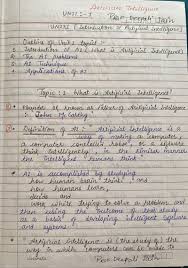 Artificial Intelligence
UNIT-1
Prof. Deepali Jain
UNIT1 (Introduction to Artificial Intelligence)
Outline of Unit's topic :
Introduction of AI (What is Artificial Intelligence)
The AI Problems
AI Technique
Applications of AI
Topic : 1 What is Artificial Intelligence?
Founder or known as Father of Artificial Intelligence
: John McCarthy
Definition of AI : Artificial Intelligence is a
way of making a computer, a
computer-controlled robot, or a software
think intelligently, in the similar manner
the intelligent humans think.
AI is accomplished by studying
how human brain think and
how humans learn,
decide and
work while trying to solve a problem and
then using the outcome of this study
as a basis of developing intelligent software
and systems.
"Artificial Intelligence is the study of the
way in which computers can be made to
Prof. Deepali Jain